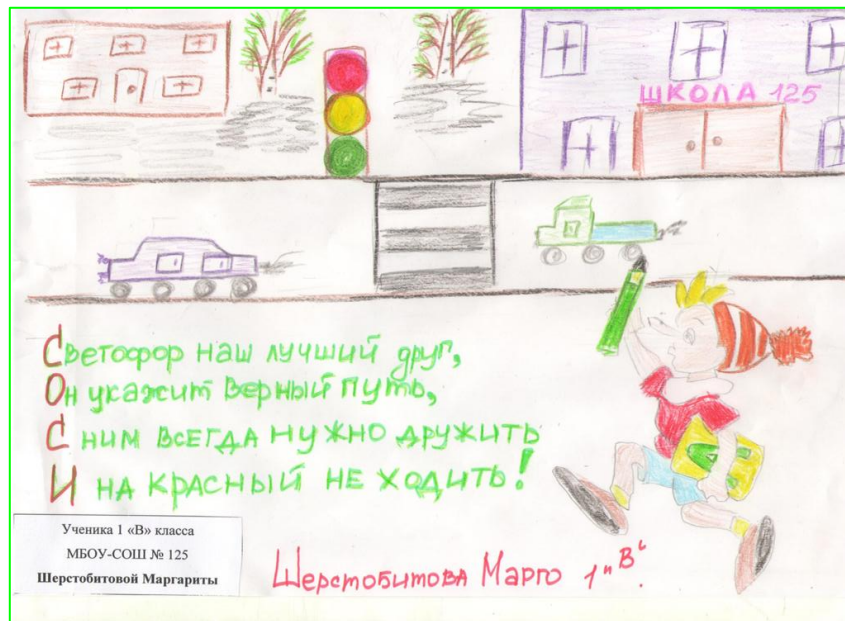 ШКОЛА 125
Светофор наш лучший друг,
Он укажит верный путь,
С ним всегда нужно дружить
И на красный не ходить!
Ученика 1 «В» класса
МБОУ-СОШ № 125
Шерстобитовой Маргариты
Шерстобитова Марго 1 "В"